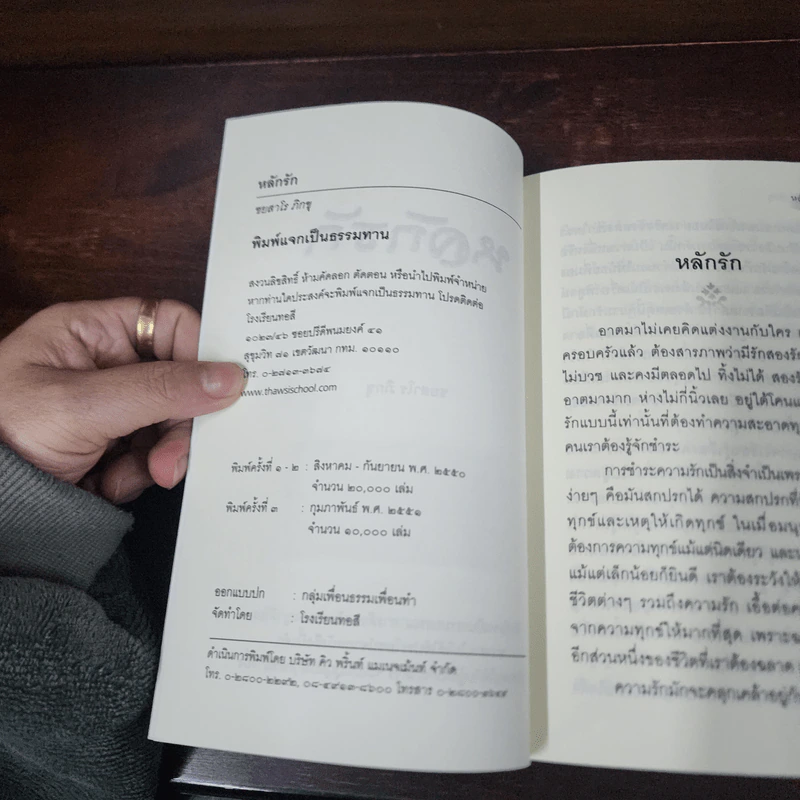 หลักรัก
ชยสาโร ภิกขุ
พิมพ์แจกเป็นธรรมทาน
สงวนลิขสิทธิ์ ห้ามคัดลอก ตัดตอน หรือนำไปพิมพ์จำหน่าย
หากท่านใดประสงค์จะพิมพ์แจกเป็นธรรมทาน โปรดติดต่อ
โรงเรียนทอสี
๑๐๒๓/๔๖ ซอยปรีดีพนมยงค์ ๔๑
สุขุมวิท ๗๑ เขตวัฒนา กทม. ๑๐๑๑๐
โทร. ๐-๒๗๑๓-๓๖๗๔
www.thawsischool.com
พิมพ์ครั้งที่ ๑ - ๒ : สิงหาคม - กันยายน พ.ศ. ๒๕๕๐
จำนวน ๒๐,๐๐๐ เล่ม
พิมพ์ครั้งที่ ๓ : กุมภาพันธ์ พ.ศ. ๒๕๕๑
จำนวน ๑๐,๐๐๐ เล่ม
ออกแบบปก : กลุ่มเพื่อนธรรมเพื่อนทำ
จัดทำโดย : โรงเรียนทอสี
ดำเนินการพิมพ์โดย บริษัท คิว พริ้นท์ แมเนจเม้นท์ จำกัด
โทร. ๐-๒๘๐๐-๒๒๙๒, ๐๘-๔๙๑๓-๘๖๐๐ โทรสาร ๐-๒๘๐๐-๓๖๔๙
หลักรัก
อาตมาไม่เคยคิดแต่งงานกับใคร
ครอบครัวแล้ว ต้องสารภาพว่ามีรักสองรัก
ไม่บวช และคงมีตลอดไป ทิ้งไม่ได้ สอง
อาตมามาก ห่างไม่กี่นิ้วเลย อยู่ใต้โคน
รักแบบนี้เท่านั้นที่ต้องทำความสะอาด
คนเราต้องรู้จักชำระ
การชำระความรักเป็นสิ่งจำเป็น
ง่ายๆ คือมันสกปรกได้ ความสกปรก
ทุกข์และเหตุให้เกิดทุกข์ ในเมื่อ
ต้องการความทุกข์แม้แต่นิดเดียว
แม้แต่เล็กน้อยก็ยินดี เราต้องระวังให้
ชีวิตต่างๆ รวมถึงความรัก เอื้อต่อ
จากความทุกข์ให้มากที่สุด
อีกส่วนหนึ่งของชีวิตที่เราต้องฉลาด
ความรักมักจะคลุกเคล้าอยู่